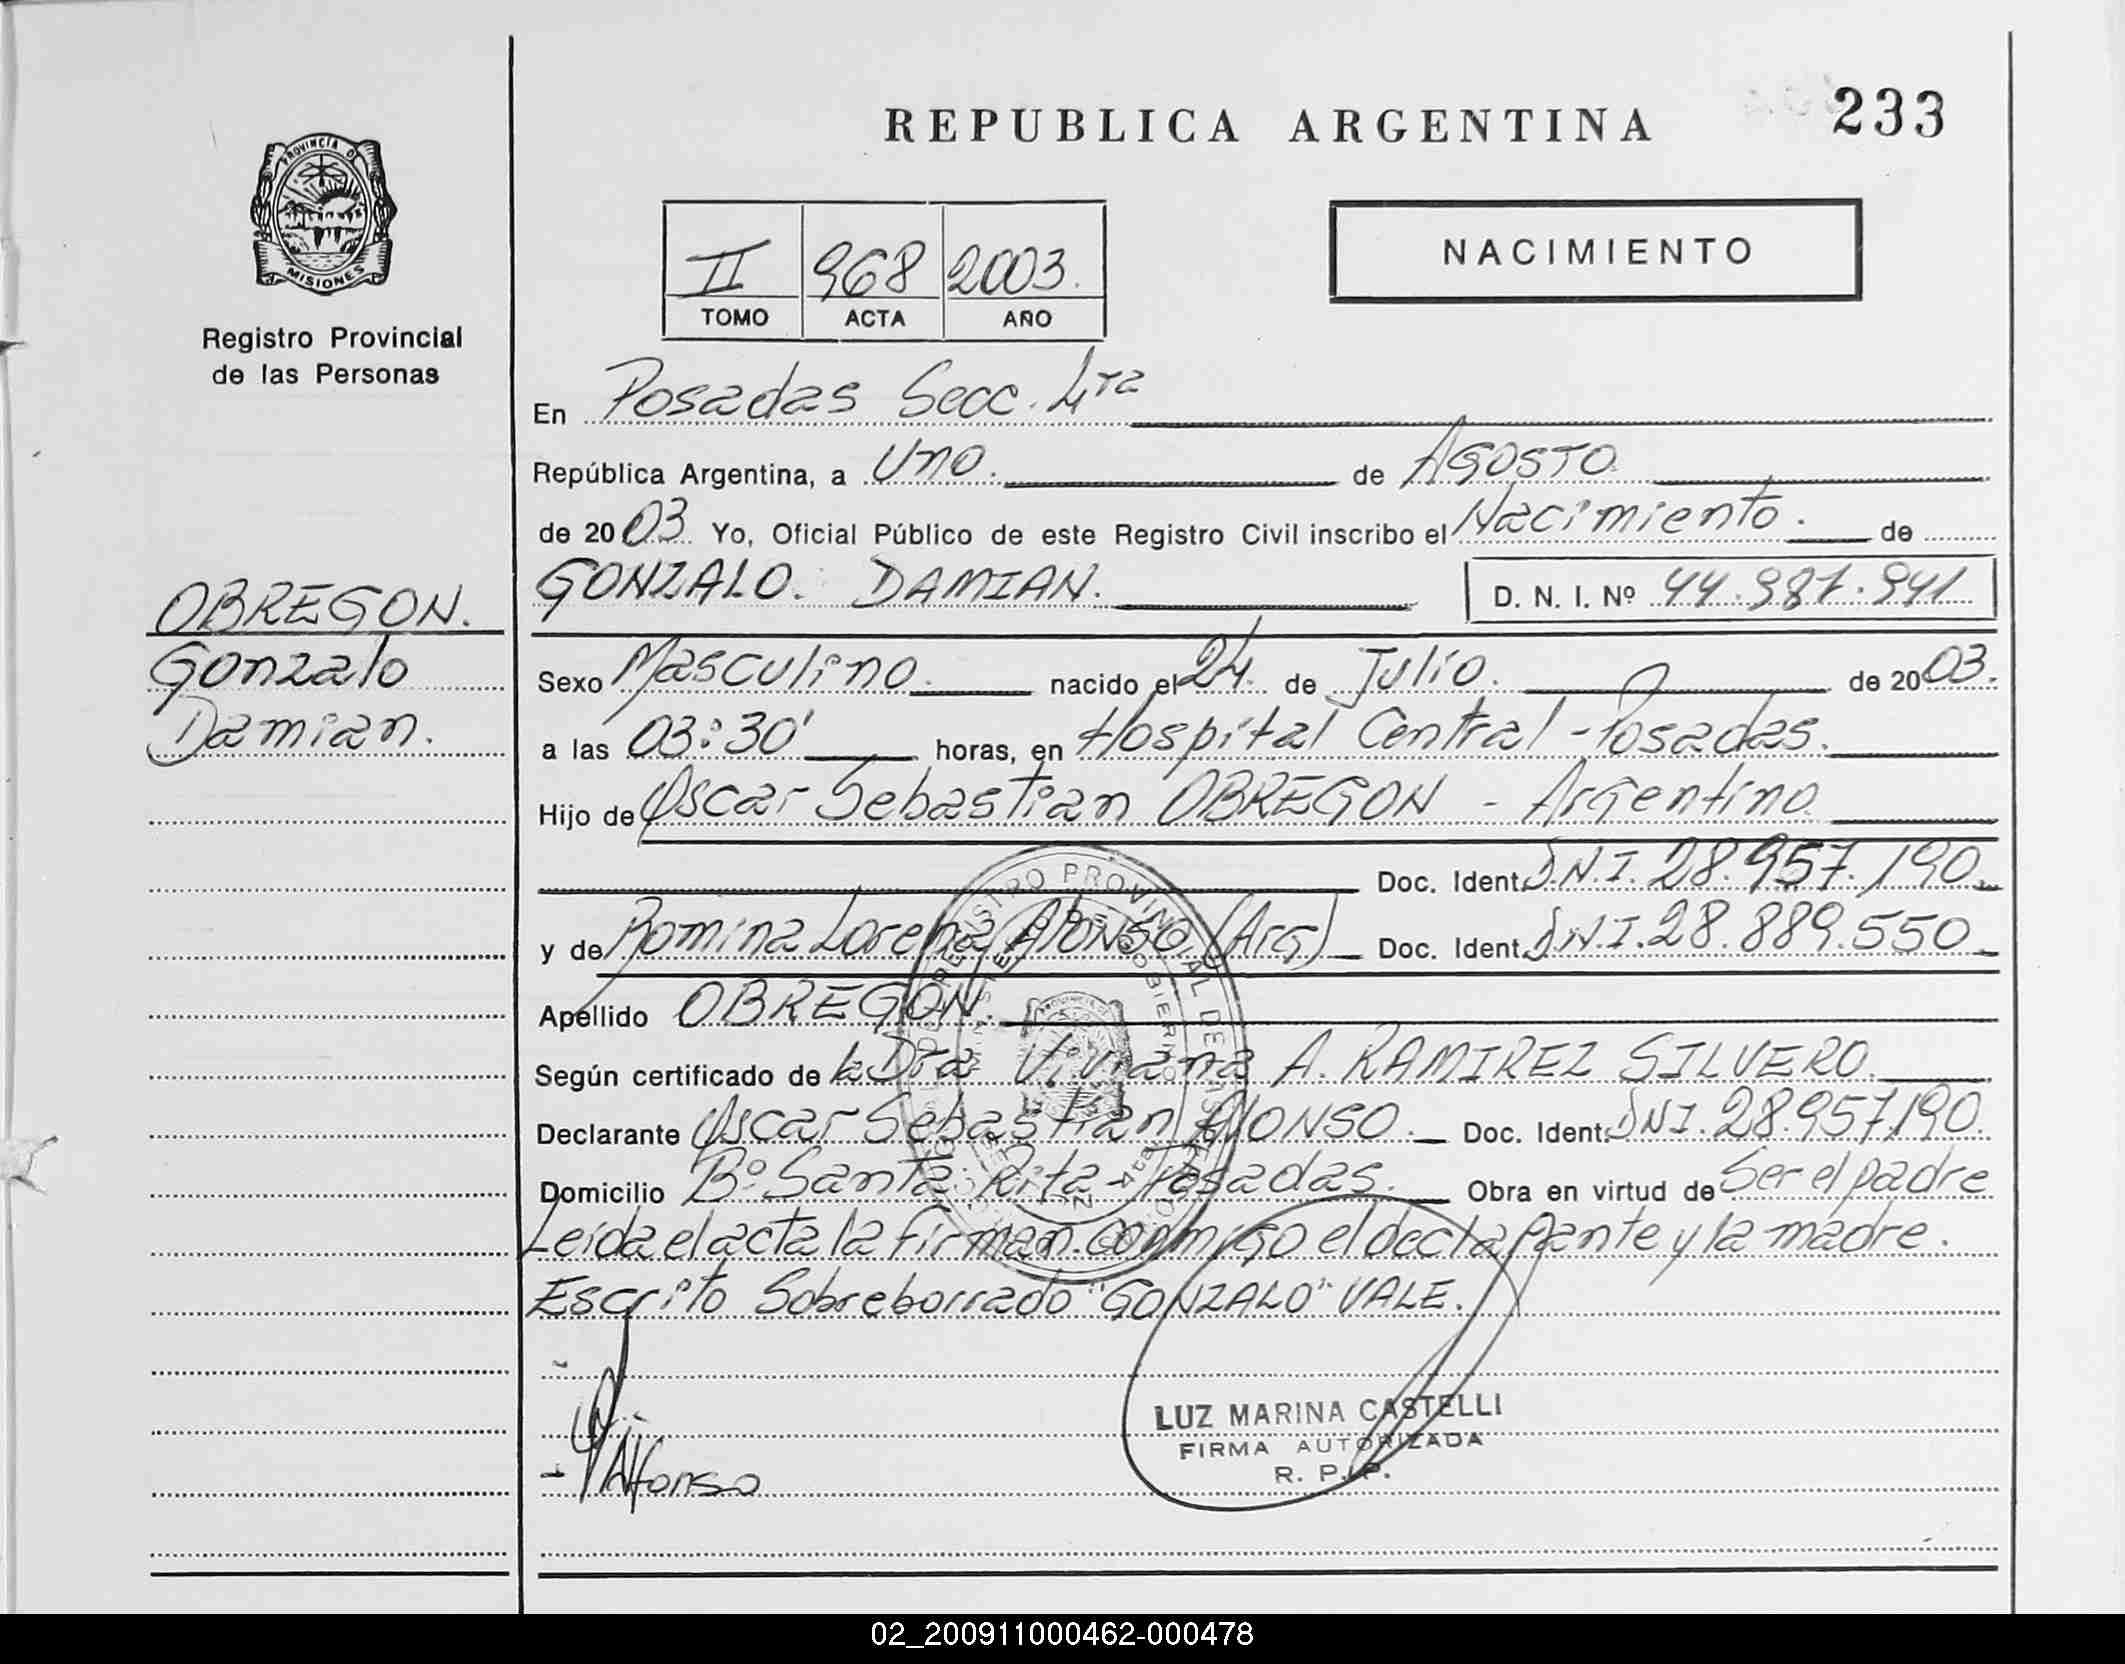 REPUBLICA ARGENTINA
233
PROVINCIA D
MISIONES
Registro Provincial
de las Personas
II 968 2003.
TOMO ACTA AÑO
NACIMIENTO
En Posadas Secc. 4ta
República Argentina, a Uno. de AGOSTO
de 2003 Yo, Oficial Público de este Registro Civil inscribo el Nacimiento. de
GONZALO DAMIAN. D. N. I. Nº 44.987.941
OBREGON.
Gonzalo
Damian.
Sexo Masculino nacido el 24 de Julio. de 2003.
a las 03:30' horas, en Hospital Central - Posadas.
Hijo de Oscar Sebastian OBREGON - Argentino
Doc. Ident. D.N.I. 28.957.190
y de Romina Lorena Alonso (Arg) Doc. Ident. D.N.I. 28.889.550
Apellido OBREGON.
Según certificado de la Dra Viviana A. RAMIREZ SILVERO.
Declarante Oscar Sebastian AlONSO. Doc. Ident. DNI. 28.957.190.
Domicilio Bº Santa Rita - Posadas. Obra en virtud de Ser el padre
Leida el acta la firman conmigo el declarante y la madre.
Escrito Sobreborrado "GONZALO" VALE.
LUZ MARINA CASTELLI
FIRMA AUTORIZADA
R. P. P.
02_200911000462-000478